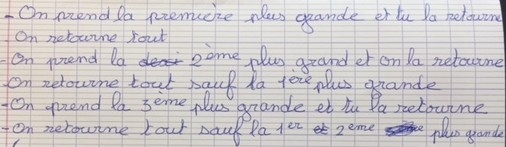 - On prend la première plus grande et tu la retourne
- On retourne tout
- On prend la 2ème plus grand et on la retourne
- On retourne tout sauf la 1ère plus grande
- On prend la 3ème plus grande et tu la retourne
- On retourne tout sauf la 1er et 2eme plus grande